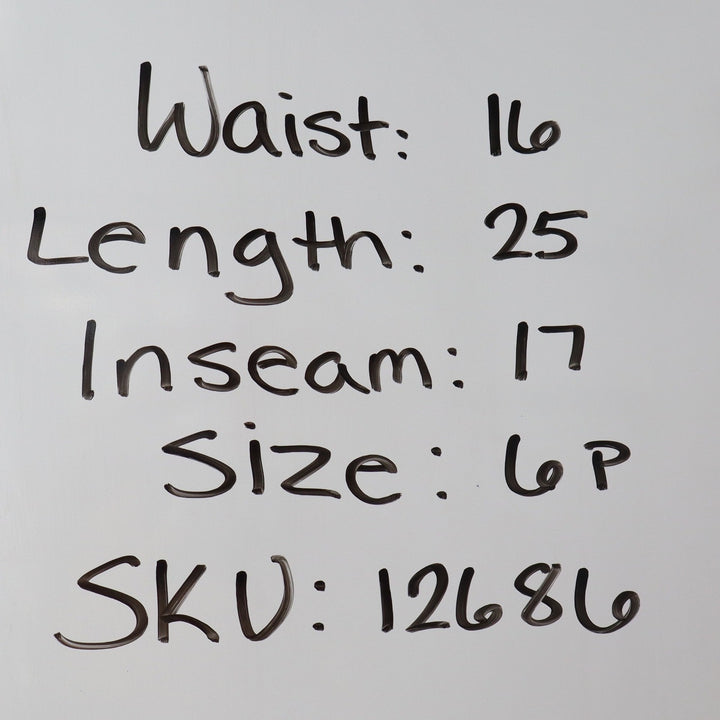 Waist: 16
Length: 25
Inseam: 17
Size: 6P
SKU: 12686